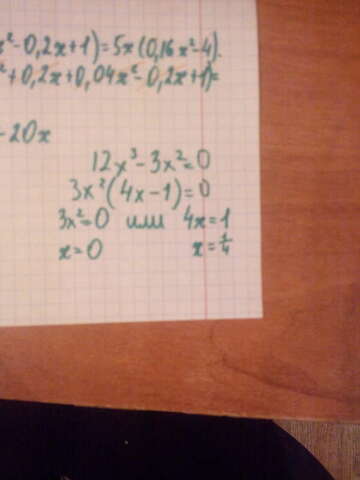 x²-0,2x+1)=5x(0,16x²-4).
²+0,2x+0,04x²-0,2x+1)=
-20x
12x³-3x²=0
3x²(4x-1)=0
3x²=0 или 4x=1
x=0 x=1/4